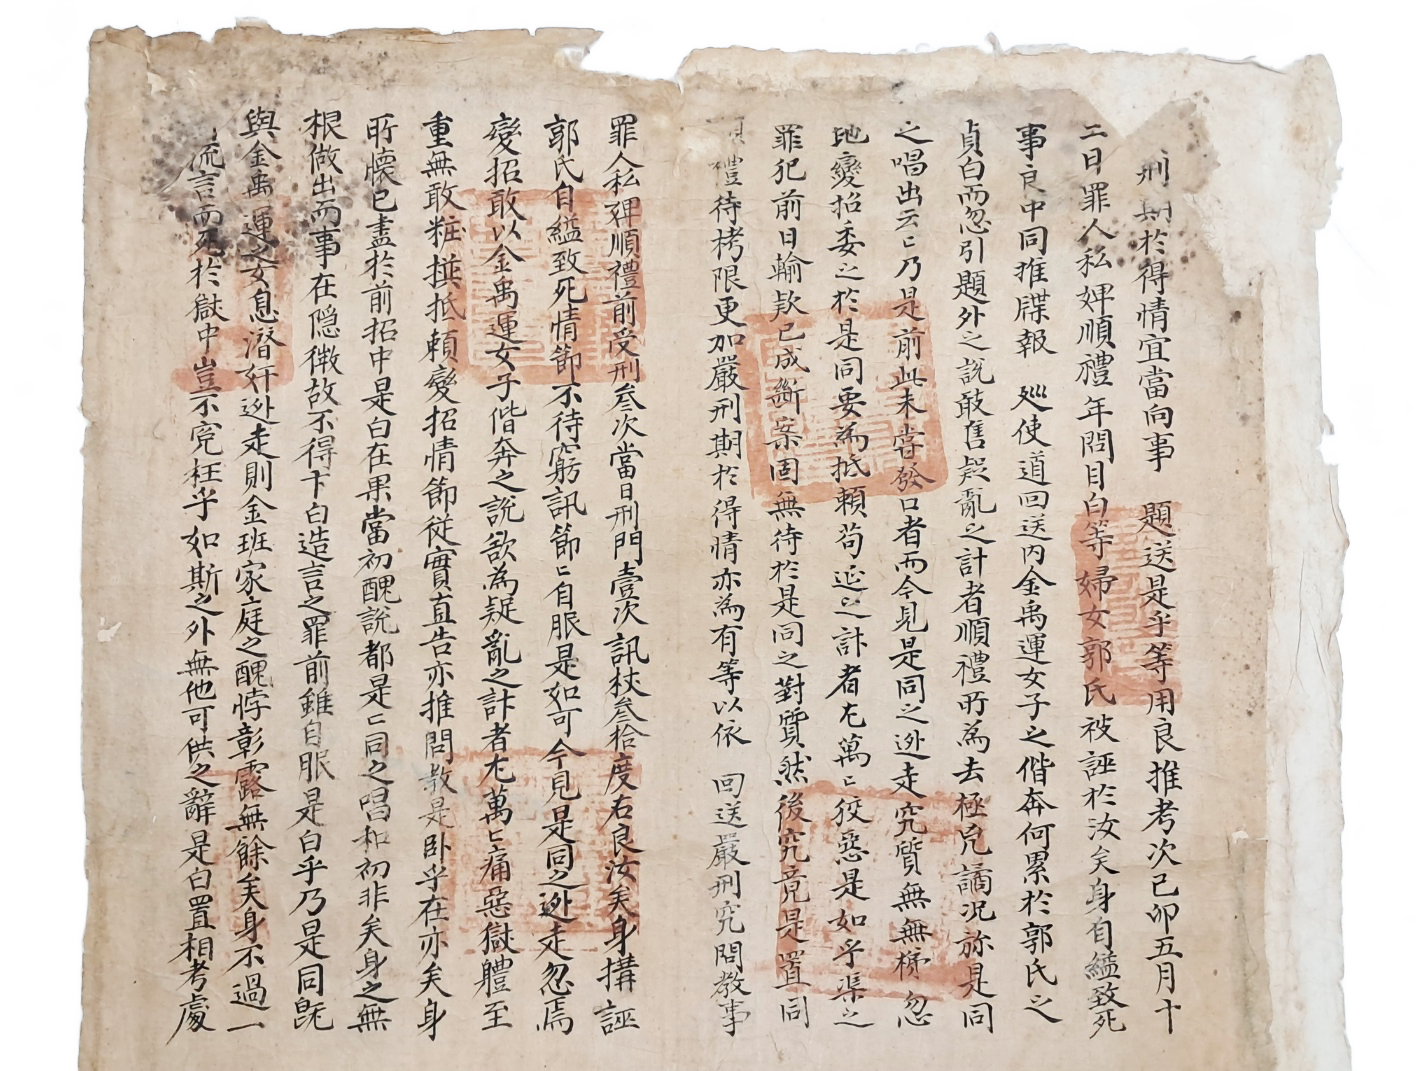 刑期於得情宜當向事 題送是乎等用良推考次己卯五月十
二日罪人私婢順禮年問目白等婦女郭氏被誣於汝矣身自縊致死
事良中同推牒報 廵使道回送內金禹運女子之偕奔何累於郭氏之
貞白而忽引題外之說敢售疑亂之計者順禮所為去極兇譎況旀是同
之唱出云云乃是前此未嘗發口者而今見是同之迯走究質無無憑忽
地變招委之於是同要為抵賴苟延之計者尤萬萬狡惡是如乎渠之
罪犯前日輸款已成斷案固無待於是同之對質然後究竟是置同
順禮待栲限更加嚴刑期於得情亦為有等以依 回送嚴刑究問敎事
罪人私婢順禮前受刑叄次當日刑問壹次訊杖叄拾度右良汝矣身搆誣
郭氏自縊致死情節不待窮訊節節自服是如可今見是同之迯走忽焉
變招敢以金禹運女子偕奔之說欲為疑亂之計者尤萬萬痛惡獄體至
重無敢粧撰抵賴變招情節從實直告亦推問敎是臥乎在亦矣身
所懷已盡於前招中是白在果當初醜說都是是同之唱和初非矣身之無
根做出而事在隱微故不得卞白造言之罪前雖自服是白乎乃是同旣
與金禹運之女息潛奸迯走則金班家庭之醜悖彰露無餘矣身不過一
流言而死於獄中豈不寃枉乎如斯之外無他可供之辭是白置相考處